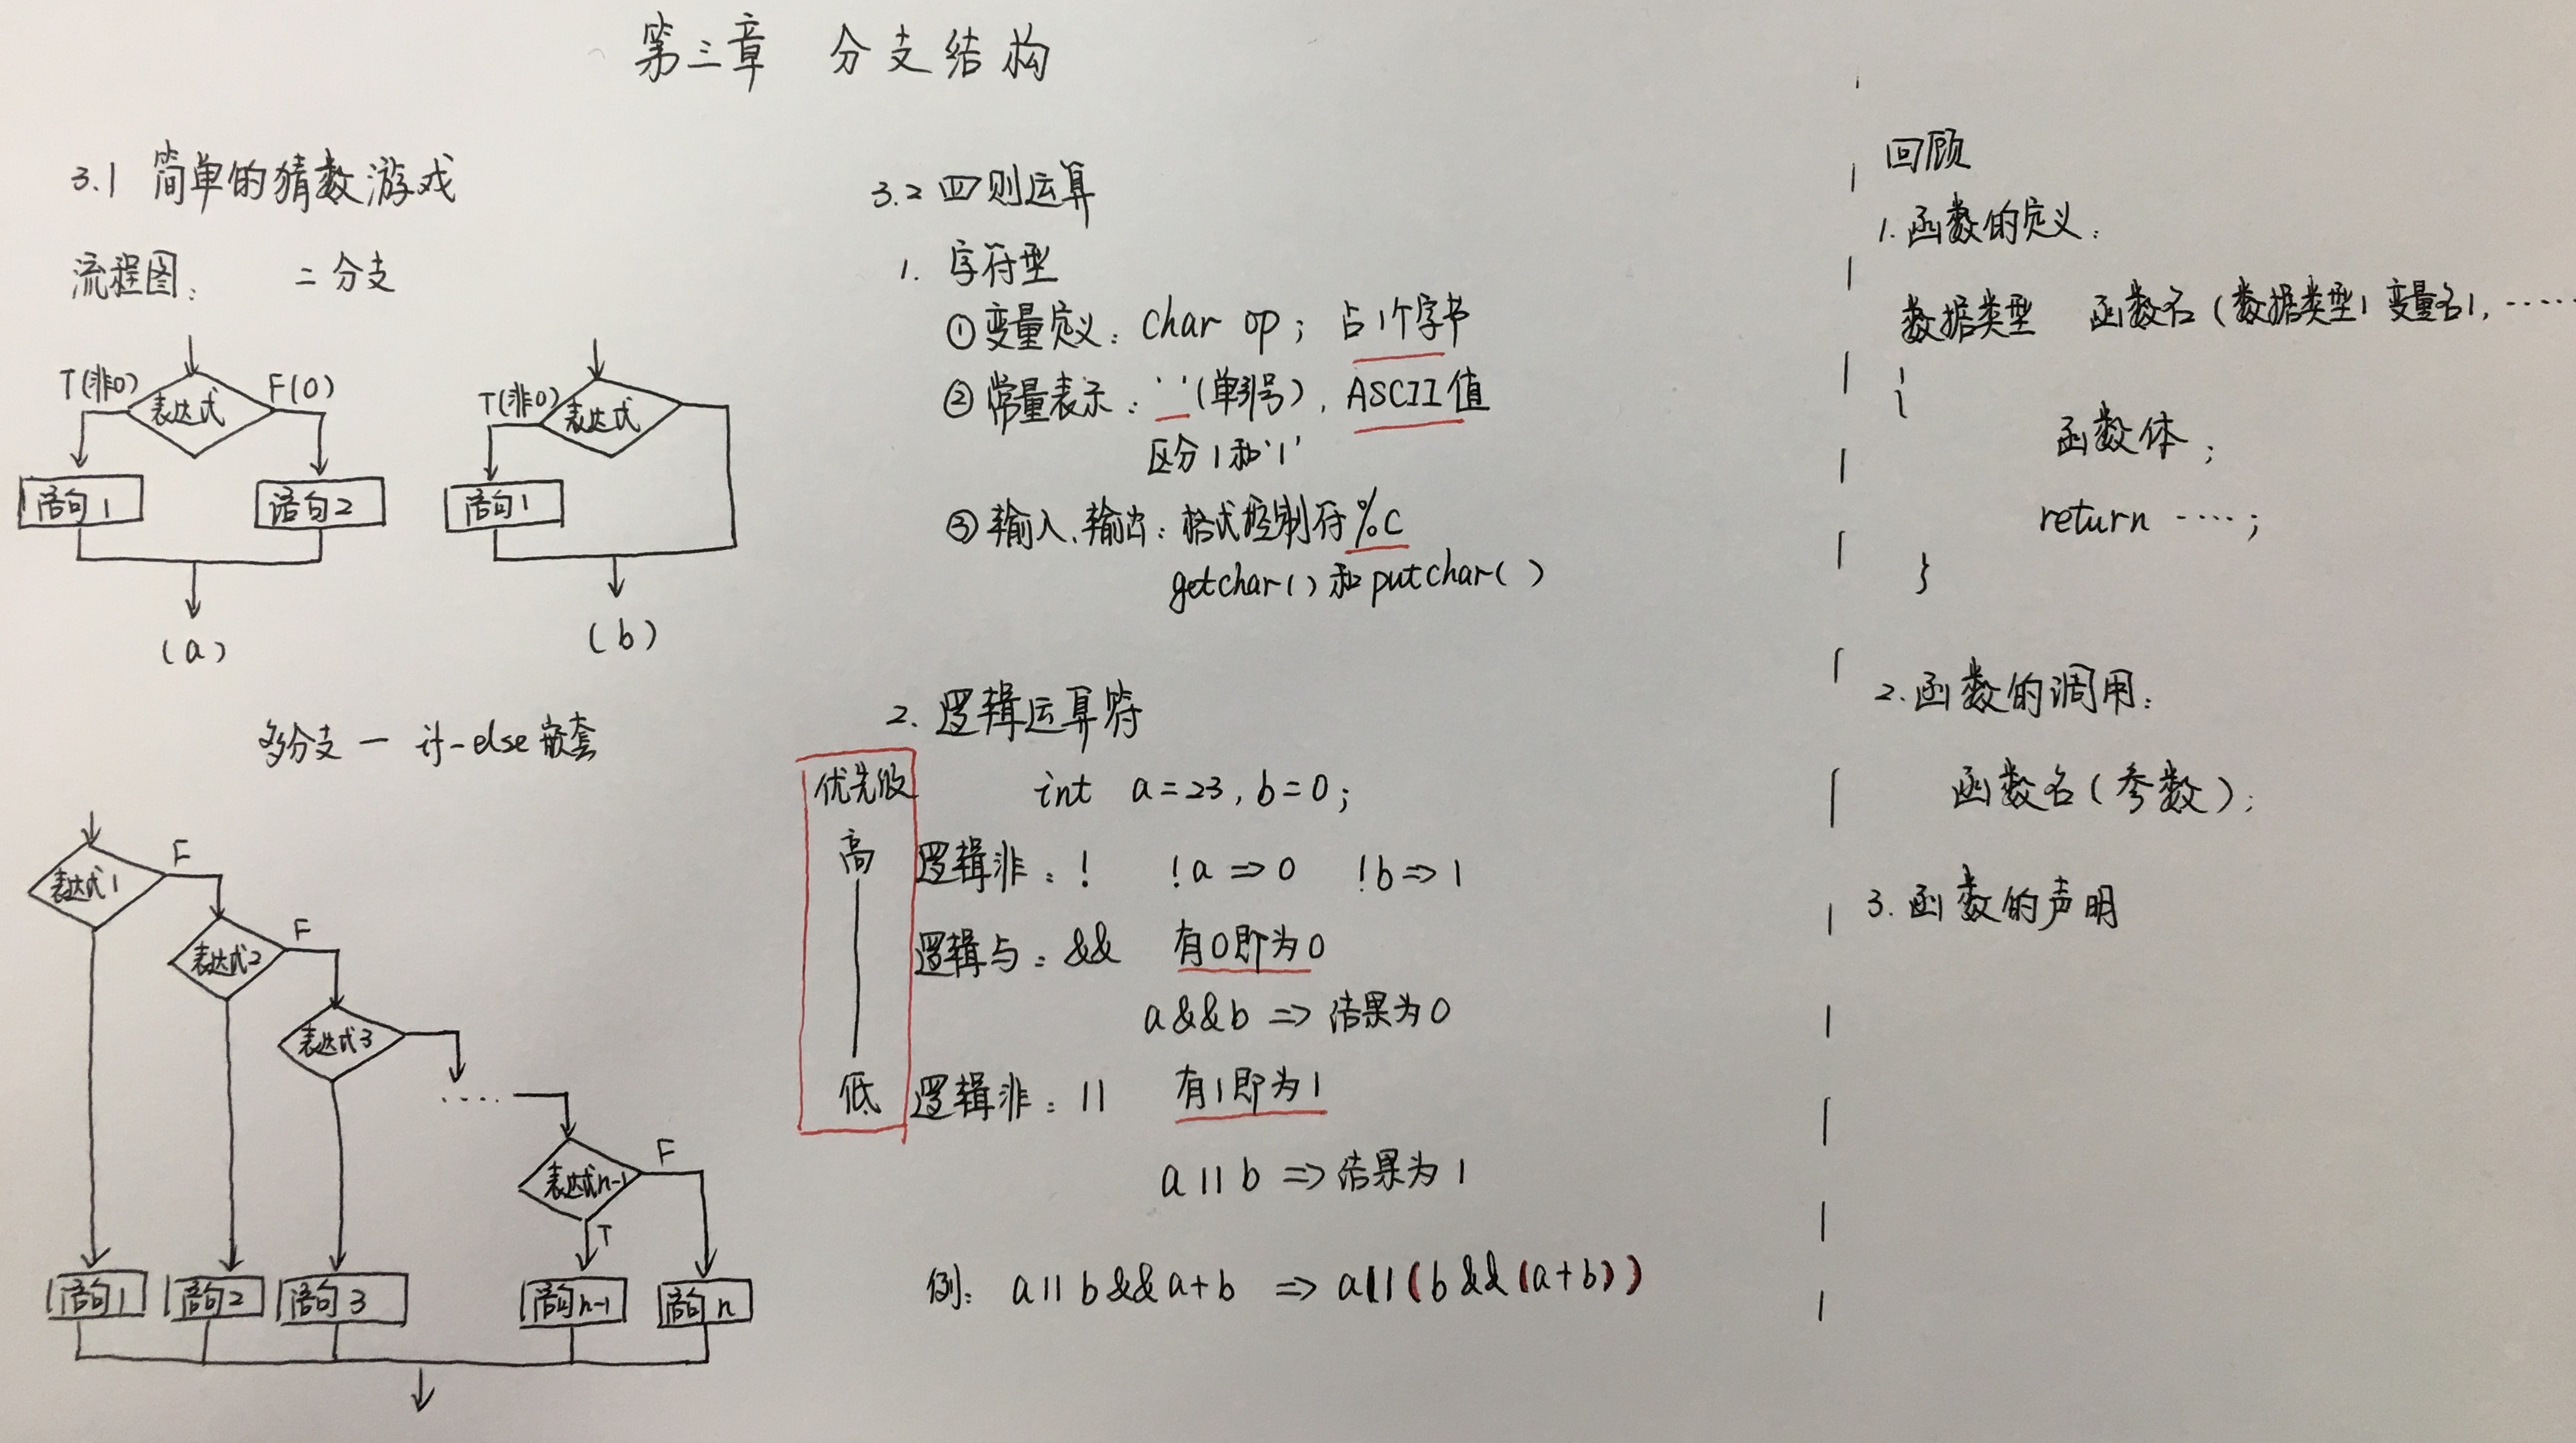 第三章 分支结构
3.1 简单的猜数游戏
流程图: 二分支
T(非0) 表达式 F(0)
语句1 语句2
(a)
T(非0) 表达式
语句1
(b)
多分支 — if-else 嵌套
表达式1 F
表达式2 F
表达式3
.....
表达式n-1 F
T
语句1 语句2 语句3 语句n-1 语句n
3.2 四则运算
1. 字符型
①变量定义: char op; 占1个字节
②常量表示: ' '(单引号), ASCII值
区分1和'1'
③输入、输出: 格式控制符%c
getchar()和putchar( )
2. 逻辑运算符
优先级 int a=23, b=0;
高 逻辑非: ! !a => 0 !b => 1
逻辑与: && 有0即为0
a&&b => 结果为0
低 逻辑非: || 有1即为1
a||b => 结果为1
例: a||b&&a+b => a||(b&&(a+b))
回顾
1. 函数的定义:
数据类型 函数名(数据类型1 变量名1, ·····
{
函数体;
return ····;
}
2. 函数的调用:
函数名(参数);
3. 函数的声明